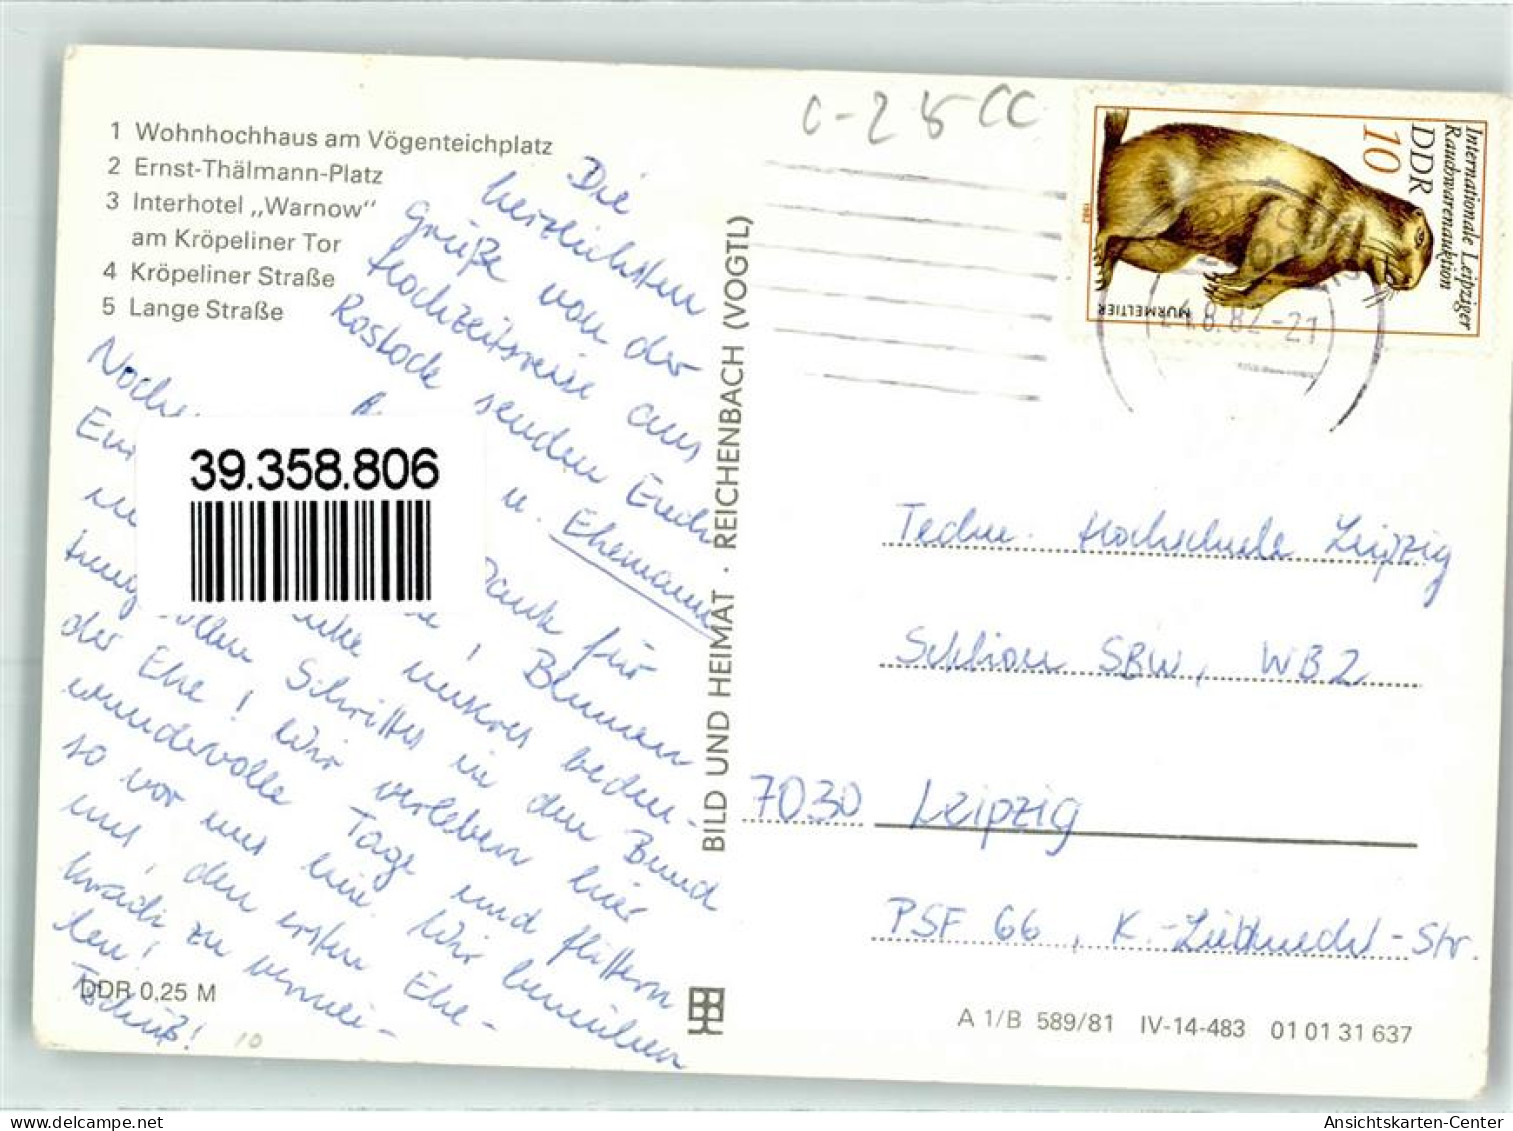 1 Wohnhochhaus am Vögenteichplatz
2 Ernst-Thälmann-Platz
3 Interhotel „Warnow"
am Kröpeliner Tor
4 Kröpeliner Straße
5 Lange Straße
Die
herzlichsten
Grüße von der
Hochzeitsreise aus
Rostock senden Euch
u. Ehemann
Dank für
Blumen
unseres bedeu-
tungsvollen Schrittes in den Bund
der Ehe! Wir verleben hier
wundervolle Tage und flittern
so vor uns hin. Wir bemühen
uns, den ersten Ehe-
krach zu vermei-
den!
Tschüß!
39.358.806
DDR 0,25 M
10
BILD UND HEIMAT · REICHENBACH (VOGTL)
C-25CC
Internationale Leipziger
Rauchwarenauktion
DDR
10
MURMELTIER
1982
.8.82-21
Techn. Hochschule Leipzig
Sektion SBW, WB2
7030 Leipzig
PSF 66, K.-Liebknecht-Str.
A 1/B 589/81 IV-14-483 01 01 31 637
Ansichtskarten-Center
www.delcampe.net